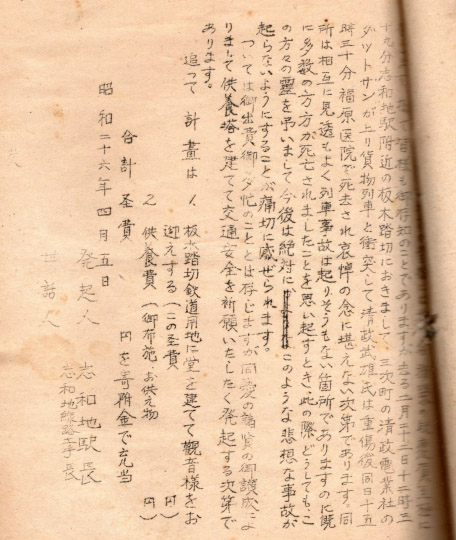 皆様も御存知のことでありますが去る二月二十一日十二時三
十九分志和地駅附近の板木踏切におきまして、三次町の清政電業社の
ダットサンが上り貨物列車と衝突して清政武雄氏は重傷後同日十五
時三十分福原医院で死去され哀悼の念に堪えない次第であります。同
所は相互に見透もよく列車事故は起りそうもない箇所でありますのに既
に多数の方方が死亡されましたことを思い起すとき、此の際どうしても、こ
の方々の霊を弔いまして今後は絶対にこのような悲想な事故が
起らないようにすることが痛切に感ぜられます。
ついては御出費御多忙のこととは存じますが同愛の諸賢の御讃成によ
りまして供養塔を建てて交通安全を祈願いたしたく発起する次第で
あります。
追って計畫は 1、板木踏切欽道用地に堂を建てて觀音様をお
迎えする（この圣費 円）
2 供養費（御布施 お供え物 円）
合計圣費 円を寄附金で充当
昭和二十六年四月五日
発起人 志和地駅長
世話人 志和地 長